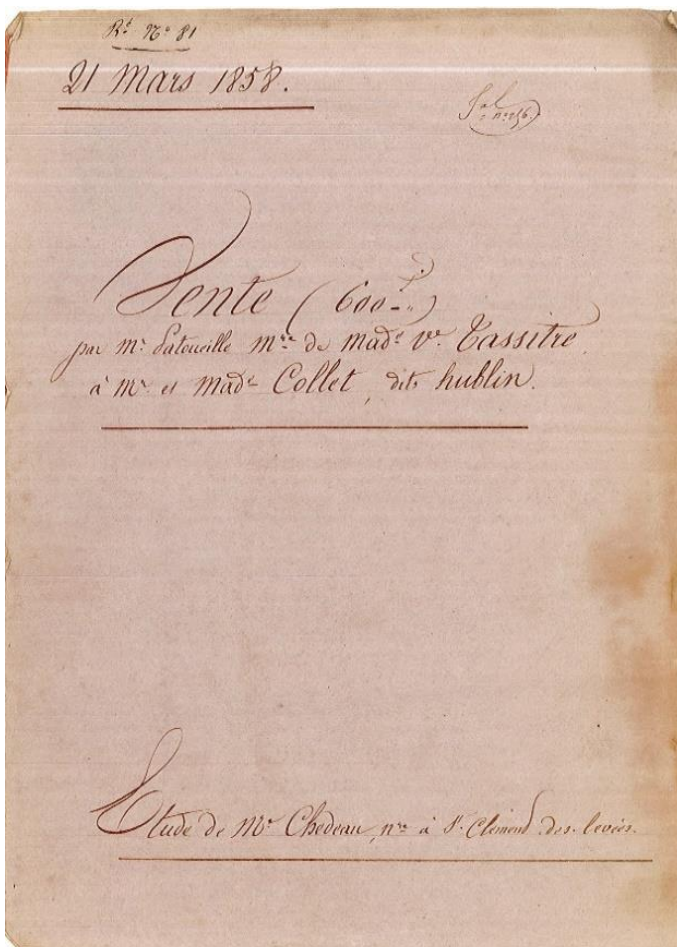 Rt No 81
21 Mars 1858.
Vente (600 f)
par mr Patouille mre de made ve Tassitre
à mr et made Collet, dits hublin.
Etude de Me Chedeau, nre à St Clément des levées.